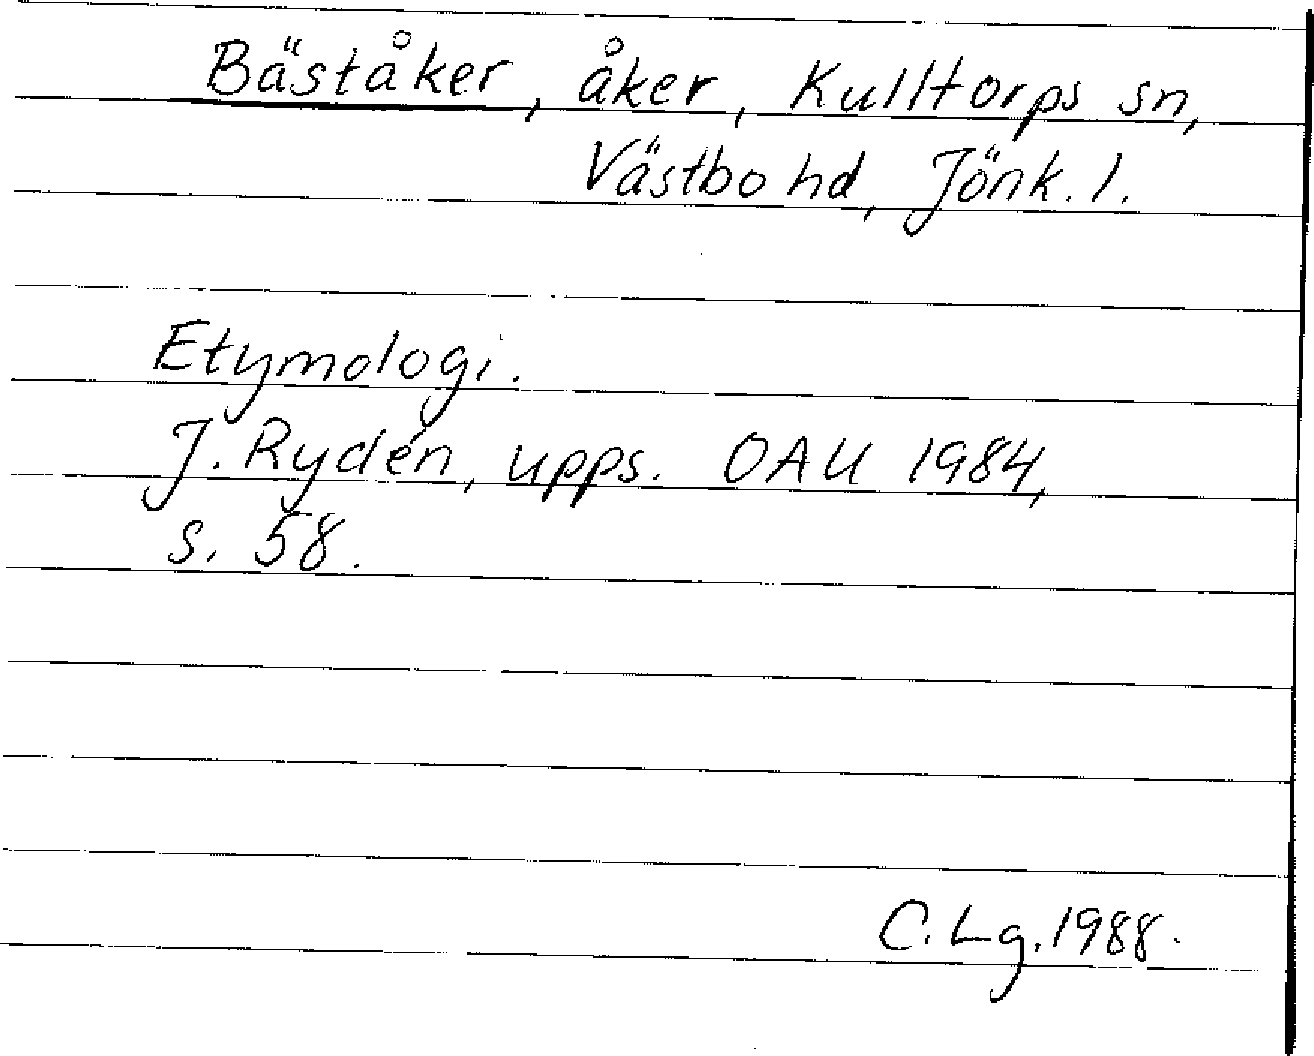 Bäståker, åker, Kulltorps sn,
Västbo hd, Jönk. l.
Etymologi.
J. Rydén, upps. OAU 1984,
s. 58.
C. Lg. 1988.